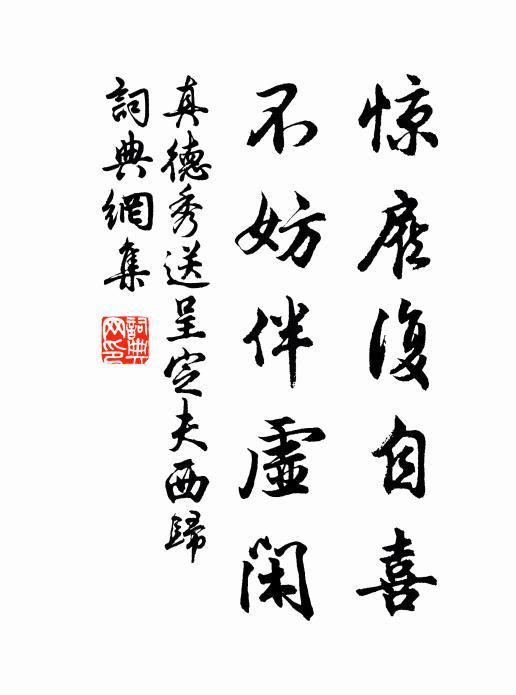 惊復自喜
不妨伴虛閑
真德秀送呈定夫西歸
詞典網集
詞典网印